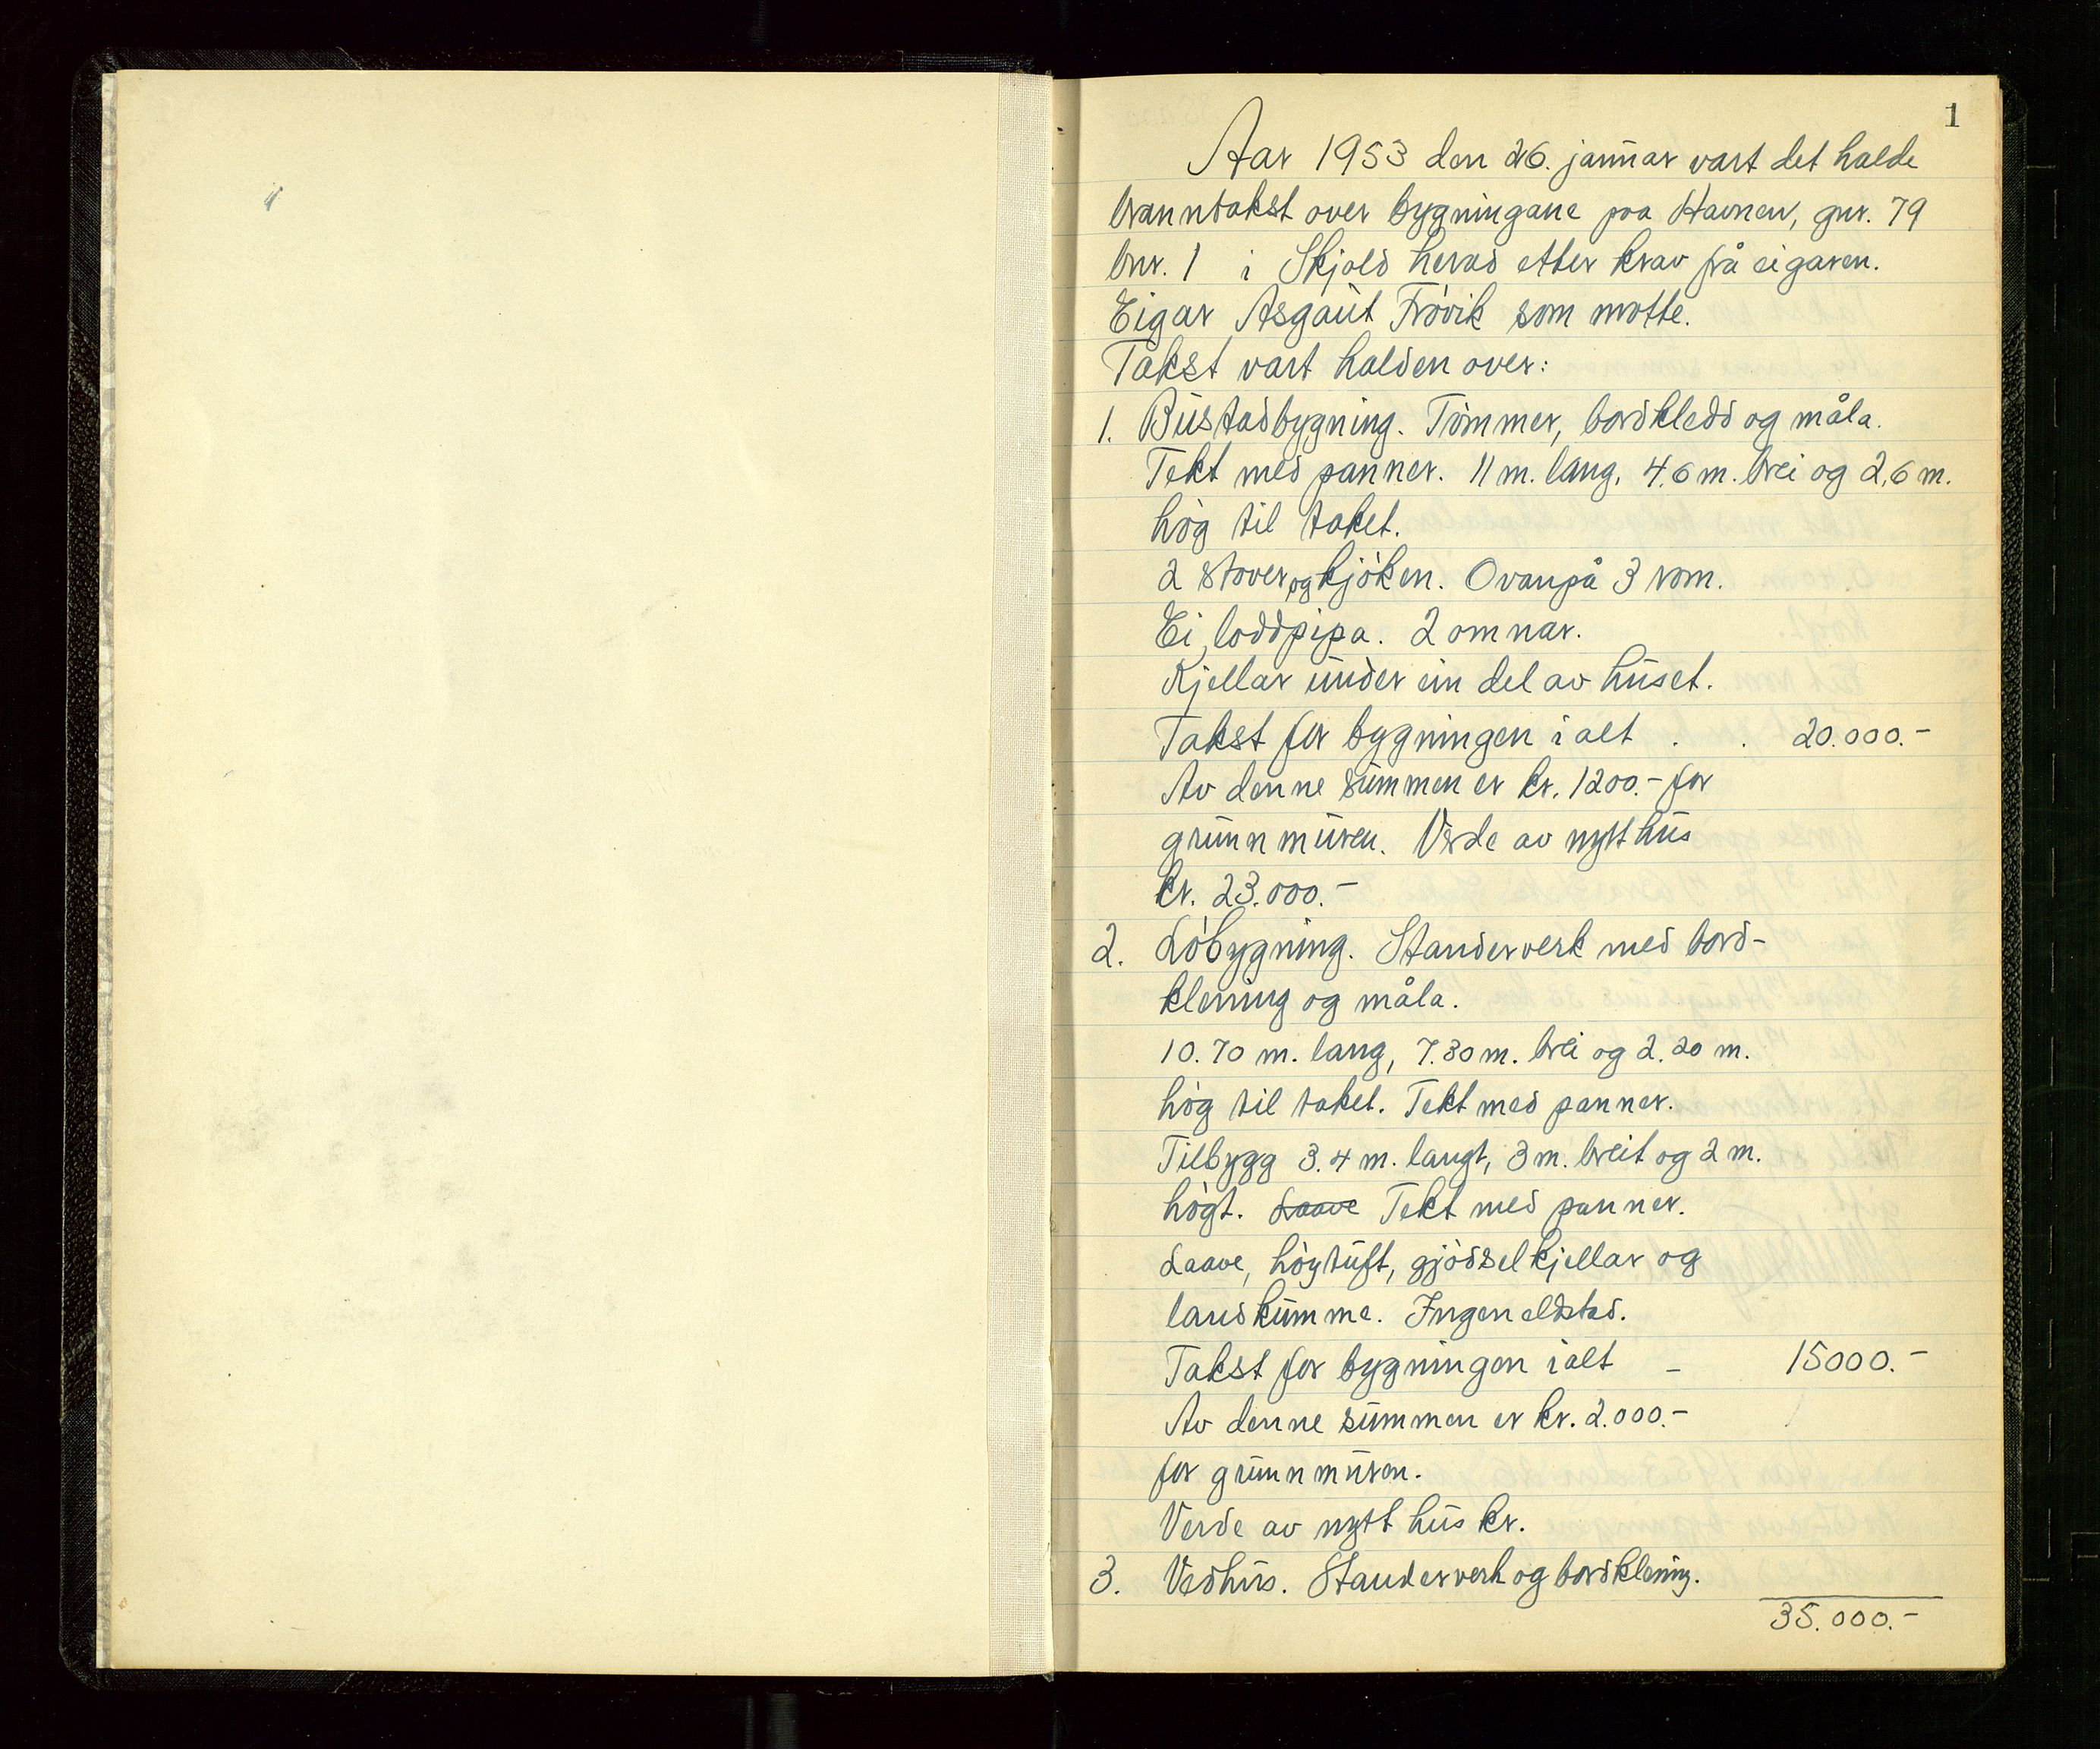 1
Aar 1953 den 26. januar vart det halde
branntakst over bygningane paa Havnen, gnr. 79
bnr. 1 i Skjold herad etter krav frå eigaren.
Eigar Asgaut Frövik som møtte.
Takst vart halden over:
1. Bustadbygning. Tömmer, bordkledd og måla.
Tekt med panner. 11 m. lang, 4.6 m. brei og 2.6 m.
hög til taket.
2 stover og kjöken. Ovanpå 3 rom.
Ei loddpipa. 2 omnar.
Kjellar under ein del av huset.
Takst for bygningen ialt . . 20.000.-
Av denne summen er kr. 1200.- for
grunnmuren. Verde av nytt hus
kr. 23.000.-
2. Löbygning. Standerverk med bord-
kledning og måla.
10.70 m. lang, 7.30 m. brei og 2.20 m.
hög til taket. Tekt med panner.
Tilbygg 3.4 m. langt, 3 m. breit og 2 m.
högt. Laave Tekt med panner.
Laave, höytuft, gjödselkjellar og
landkumme. Ingen eldstad.
Takst for bygningen ialt - 15000.-
Av denne summen er kr. 2.000.-
for grunnmuren.
Verde av nytt hus kr.
3. Vedhus. Standerverk og bordklening.
35.000.-